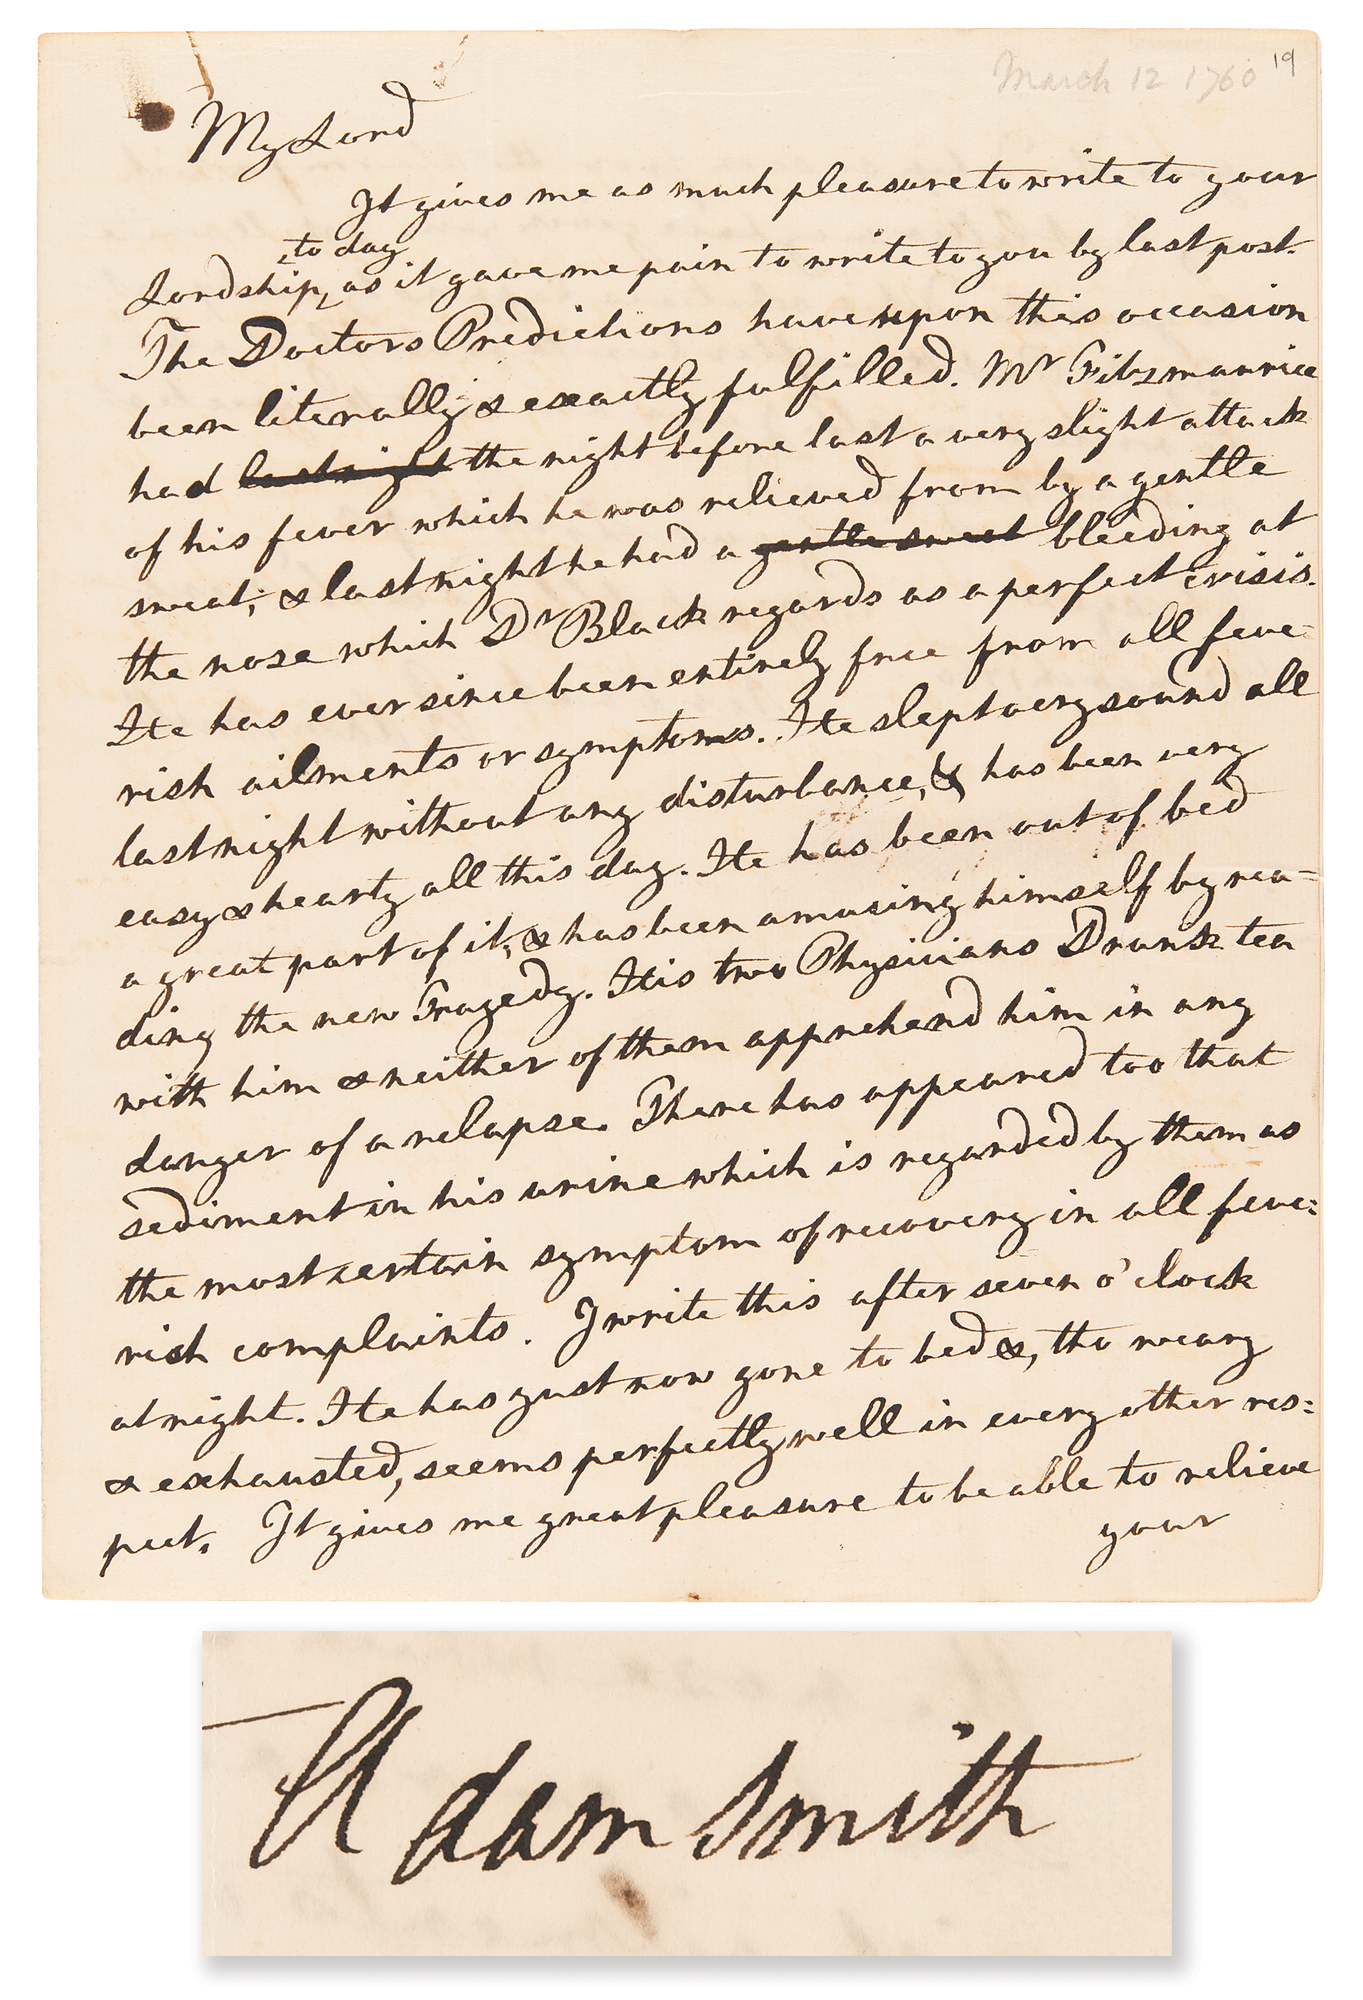 March 12 1760
19
My Lord
It gives me as much pleasure to write to your
to day
Lordship, as it gave me pain to write to you by last post.
The Doctors Predictions have upon this occasion
been literally & exactly fulfilled. Mr Fitzmaurice
had last night the night before last a very slight attack
of his fever which he was relieved from by a gentle
sweat; & last night he had a gentle sweat bleeding at
the nose which Dr Black regards as a perfect Crisis.
He has ever since been entirely free from all feve-
rish ailments or symptoms. He slept very sound all
last night without any disturbance, & has been very
easy & hearty all this day. He has been out of bed
a great part of it; & has been amusing himself by rea-
ding the new Tragedy. His two Physicians Drank tea
with him & neither of them apprehend him in any
danger of a relapse. There has appeared too that
sediment in his urine which is regarded by them as
the most certain symptom of recovery in all feve:
rish complaints. I write this after seven o'clock
at night. He has just now gone to bed &, tho weary
& exhausted, seems perfectly well in every other res:
pect. It gives me great pleasure to be able to relieve
your
Adam Smith